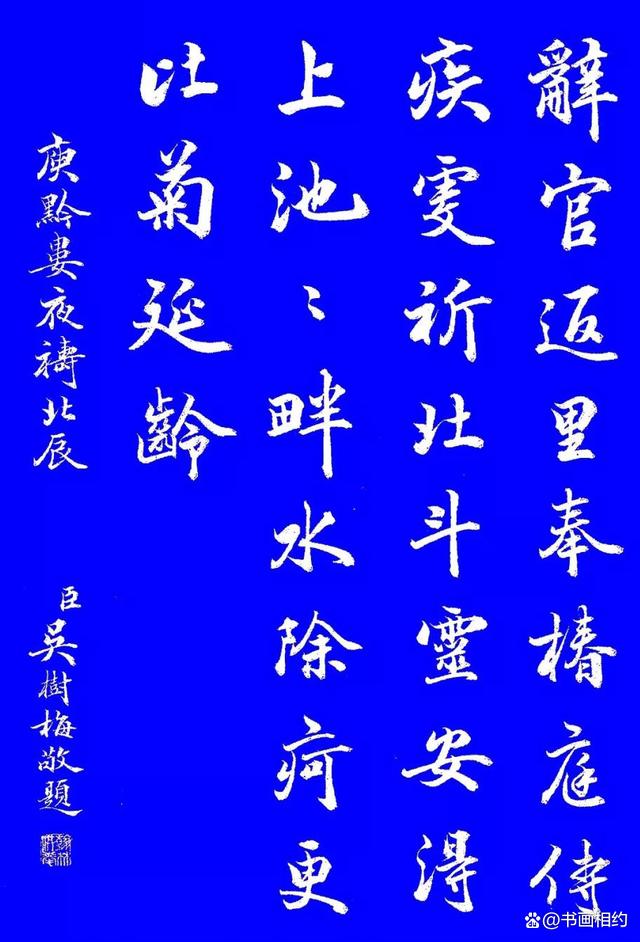 辭官返里奉椿庭侍
疾虔祈北斗靈安得
上池〻畔水除疴更
比菊延齡
庾黔婁夜禱北辰
臣吳樹梅敬題
@书画相约